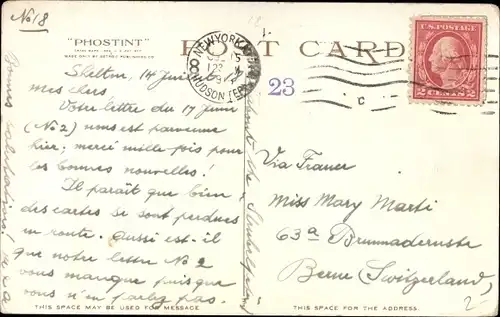 No 18
"PHOSTINT"
POST CARD
MADE ONLY BY DETROIT PUBLISHING CO.
NEW YORK, N.Y.
HUDSON TER
23
U.S. POSTAGE
2 CENTS 2
Shelton, 14 Juin
mes chers
Votre lettre du 17 Juin
(No 2) nous est parvenue
hier; merci mille fois pour
les bonnes nouvelles!
Il paraît que bien
des cartes se sont perdues
en route. Aussi est-il
que notre lettre No 2
vous manque puisque
vous n'en parlez pas.
Bonnes salutations!
Via France
Miss Mary Marti
63a Brunnadernstr
Berne (Switzerland)
THIS SPACE MAY BE USED FOR MESSAGE
THIS SPACE IS FOR THE ADDRESS